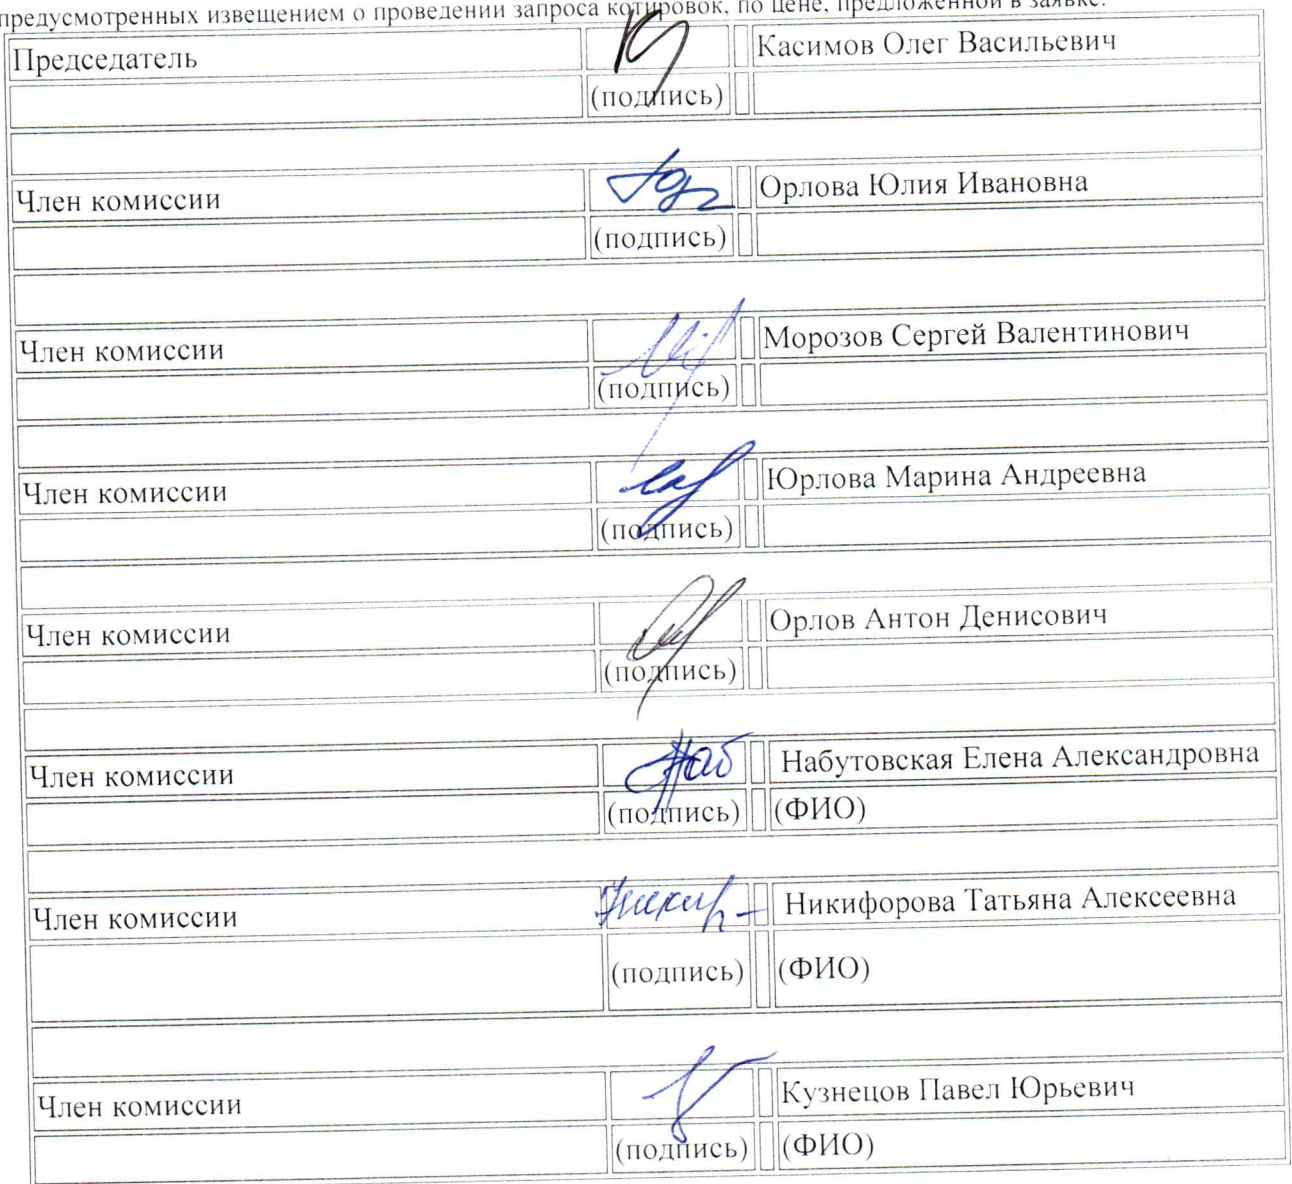 предусмотренных извещением о проведении запроса котировок, по цене, предложенной в заявке.
Председатель Касимов Олег Васильевич
(подпись)
Член комиссии Орлова Юлия Ивановна
(подпись)
Член комиссии Морозов Сергей Валентинович
(подпись)
Член комиссии Юрлова Марина Андреевна
(подпись)
Член комиссии Орлов Антон Денисович
(подпись)
Член комиссии Набутовская Елена Александровна
(подпись) (ФИО)
Член комиссии Никифорова Татьяна Алексеевна
(подпись) (ФИО)
Член комиссии Кузнецов Павел Юрьевич
(подпись) (ФИО)